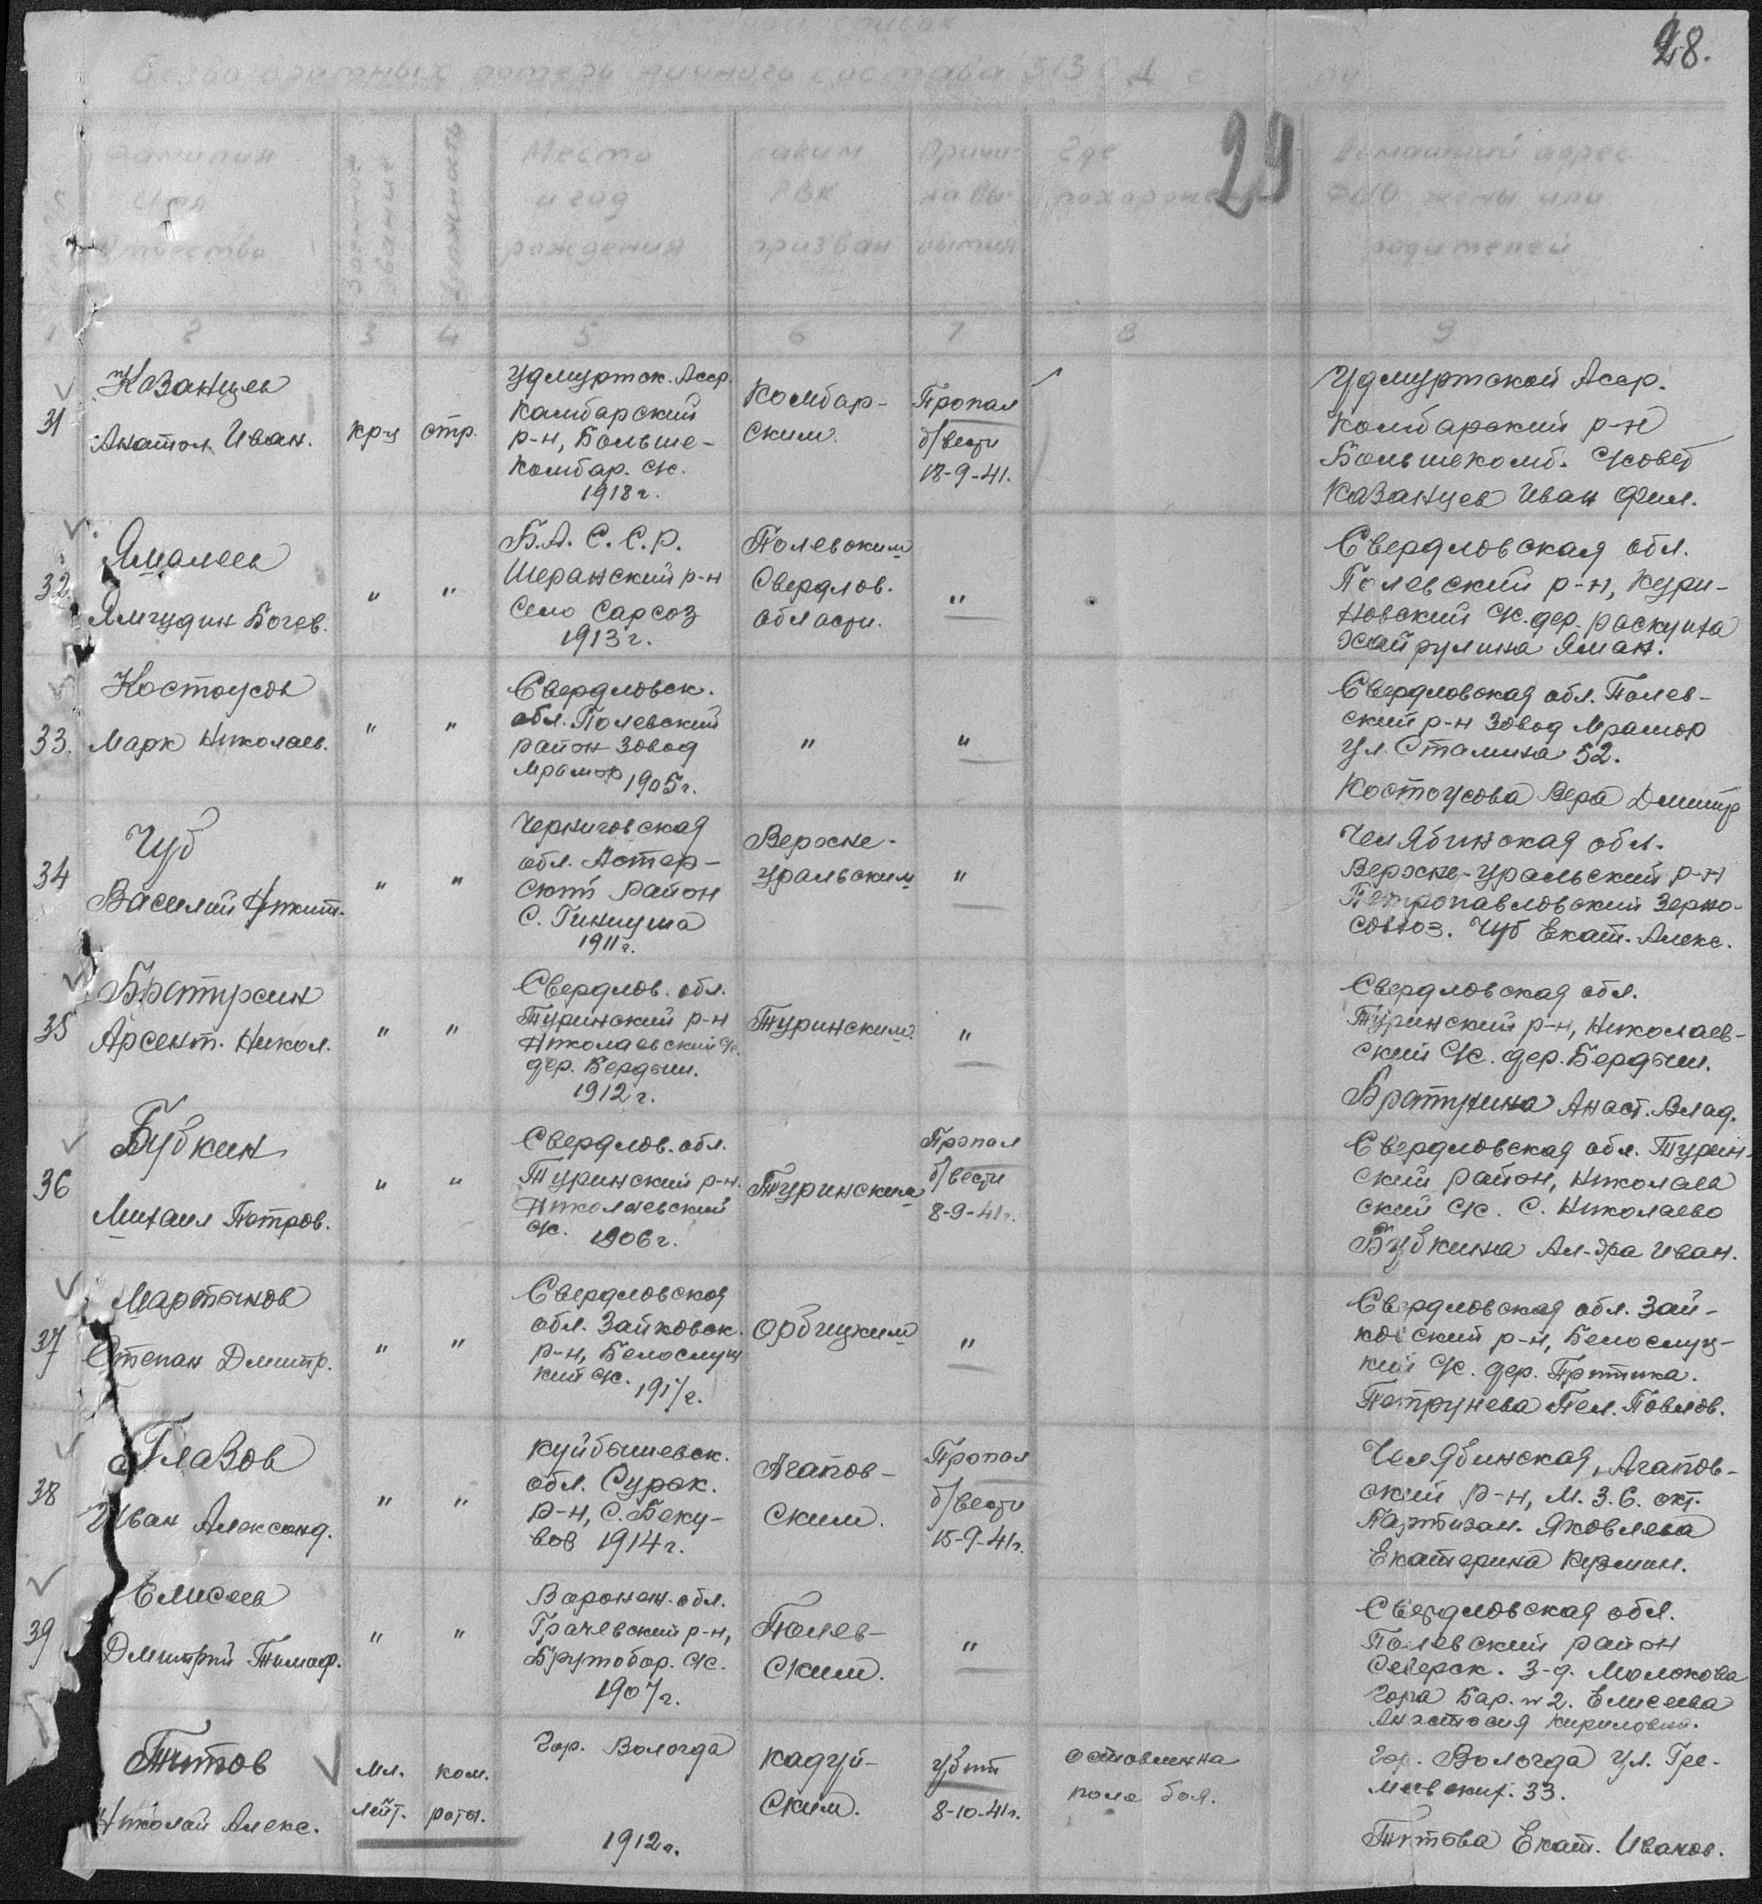 28.
список
Безвозвратных потерь личного состава 313 С Д
29
Фамилия Имя Отчество
Военное звание
Должность
Место и год рождения
Каким РВК призван
Причина выбытия
Где похоронен
Домашний адрес ФИО жены или родителей
1 2 3 4 5 6 7 8 9
31
Казанцев
Анатол. Иван.
кр-ц
стр.
Удмуртск. Асср.
Камбарский
р-н, Больше-
Комбар. с/с.
1918 г.
Комбар-
ским.
Пропал
б/вести
18-9-41.
Удмуртской Асср.
Комбарский р-н
Большекомб. с/совет
Казанцев Иван Фил.
32.
Ямалеев
Ямгудин Богев.
"
"
Б.А.С.С.Р.
Шеранский р-н
Село Сарсоз
1913 г.
Полевским
Свердлов.
области.
"
Свердловская обл.
Полевский р-н, Кури-
новский с/с. дер. Раскуиха
Хайрулина Яман.
33.
Костоусов
Марк Николаев.
"
"
Свердловск.
обл. Полевский
район Завод
Мрамор 1905 г.
"
"
Свердловская обл. Полев-
ский р-н Завод Мрамор
ул. Сталина 52.
Костоусова Вера Дмитр
34
Чуб
Василий Никит.
"
"
Черниговская
обл. Астер-
ский район
С. Гинцуша
1911 г.
Верхне-
уральским
"
Челябинская обл.
Верхне-Уральский р-н
Петропавловский Зерно-
совхоз. Чуб Екат. Алекс.
35
Братурсин
Арсент. Никол.
"
"
Свердлов. обл.
Туринский р-н
Николаевский с/с.
дер. Бердыш.
1912 г.
Туринским.
"
Свердловская обл.
Туринский р-н, Николаев-
ский с/с. дер. Бердыш.
Братухина Анаст. Влад.
36
Бубкин
Михаил Петров.
"
"
Свердлов. обл.
Туринский р-н.
Николаевский
с/с. 1906 г.
Туринским
Пропал
б/вести
8-9-41 г.
Свердловская обл. Турин-
ский район, Николаев
ский с/с. С. Николаево
Бубкина Ал-дра Иван.
37
Мартынов
Степан Дмитр.
"
"
Свердловская
обл. Зайковск.
р-н, Белослуц
кий с/с. 1917 г.
Орбицким
"
Свердловская обл. Зай-
ковский р-н, Белослуц-
кий с/с. дер. Притыка.
Петрунева Пел. Павлов.
38
Глазов
Иван Александ.
"
"
Куйбышевск.
обл. Сурск.
р-н, С. Беку-
вов 1914 г.
Агапов-
ским.
Пропал
б/вести
15-9-41 г.
Челябинская, Агапов-
ский р-н, М.З.С. окт.
Партизан. Яковлева
Екатерина Кузмин.
39
Елисеев
Дмитрий Тимоф.
"
"
Воронеж. обл.
Грачевский р-н,
Брутобор. с/с.
1907 г.
Полев-
ским.
"
Свердловская обл.
Полевский район
Северск. З-д. Молокова
гора Бар. № 2. Елисеева
Анастасия Кириловна.
Титов
Николай Алекс.
Мл.
лейт.
ком.
роты.
Гор. Вологда
1912 г.
Кадуй-
ским.
Убит
8-10-41 г.
оставлен на
поле боя.
Гор. Вологда ул. Гре-
мивский. 33.
Титова Екат. Иванов.